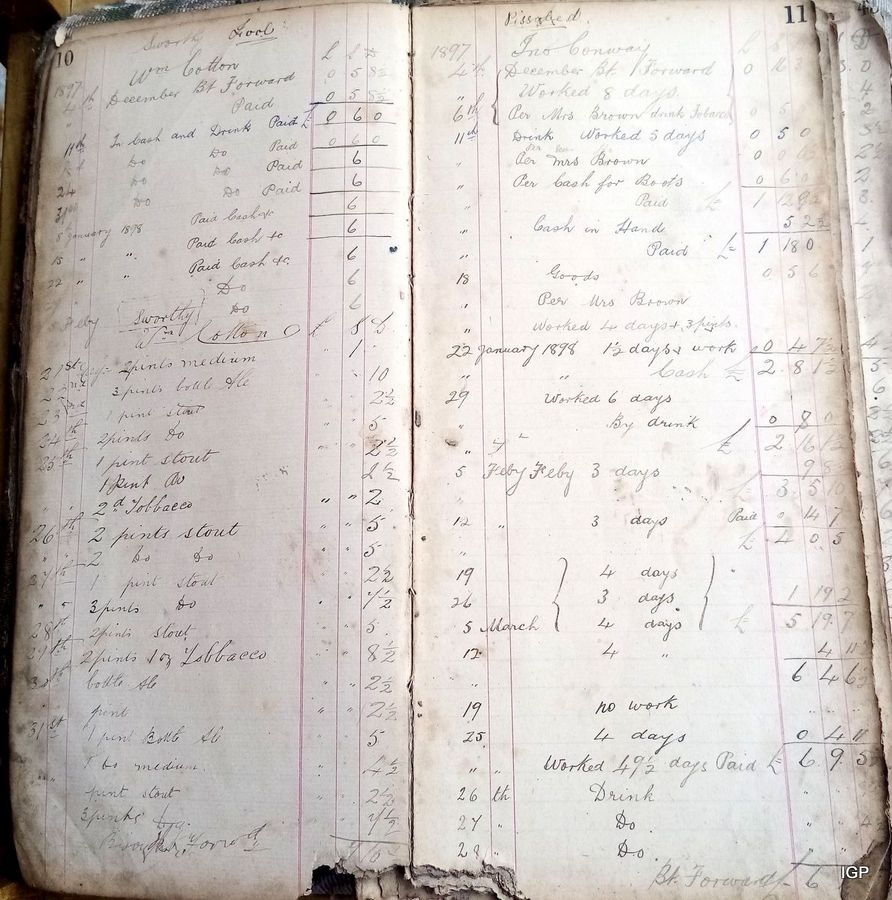 10
Sworthy Fool
Wm Cotton £ S D
1897
4th December Bt. Forward 0 5 8½
" Paid 0 5 8½
11th In Cash and Drink Paid £ 0 6 0
Do Do Paid 0 6 0
24 Do Do Paid 6
31st Do Do Paid 6
8 January 1898 Paid Cash &c 6
15 " " Paid Cash &c 6
22 " " Paid Cash &c 6
Do 6
Feby Do 6
Sworthy
Wm Cotton £ S D
21st 2 pints medium " 1 "
22nd 3 pints bottle Ale 10
23rd 1 pint stout 2½
24th 2 pints Do 5
25th 1 pint stout 2½
1 pint Do 2½
" " 2d Tobbacco " " 2
26th 2 pints stout " " 5
" " 2 Do Do " " 5
27th 1 pint stout 2½
" " 3 pints Do 7½
28th 2 pints stout 5
29th 2 pints 1 oz Tobbacco 8½
30th bottle Ale 2½
pint 2½
31st 1 pint Bottle Ale 5
1 Do medium 4½
pint stout 2½
3 pints 7½
11
1897 Jno Conway £
4th December Bt. Forward 0 16 3
" Worked 8 days
6th Per Mrs Brown drink Tobacco 0 5
11th Drink Worked 5 days 0 5 0
" Per Mrs Brown
" Per Cash for Boots 0 6 0
" Paid £ 1 12 9
" Cash in Hand 5 2½
" Paid £ 1 18 0
18 Goods 0 5 6
" Per Mrs Brown
" Worked 4 days + 3 pints
22 January 1898 1½ days work 0 4 7½
" " Cash £ 2 8 1½
29 Worked 6 days
" By drink 0 8 0
" " £ 2 16 1½
5 Feby Feby 3 days 9 8
" £ 3 5
12 " 3 days Paid 0 14 7
" £ 4 0 5
19 4 days
26 3 days 1 19 2
5 March 4 days £ 5 19 7
12 4 " 4 11
6 4 6
19 no work
25 4 days 0 4 11
" " Worked 49½ days Paid £ 6 9 5
26 th Drink
27 " Do
28 " Do
Bt. Forward £ 6
IGP